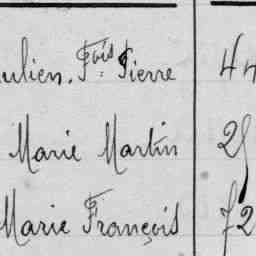 ulien. Fois Pierre 44
Marie Martin 25
Marie François 72